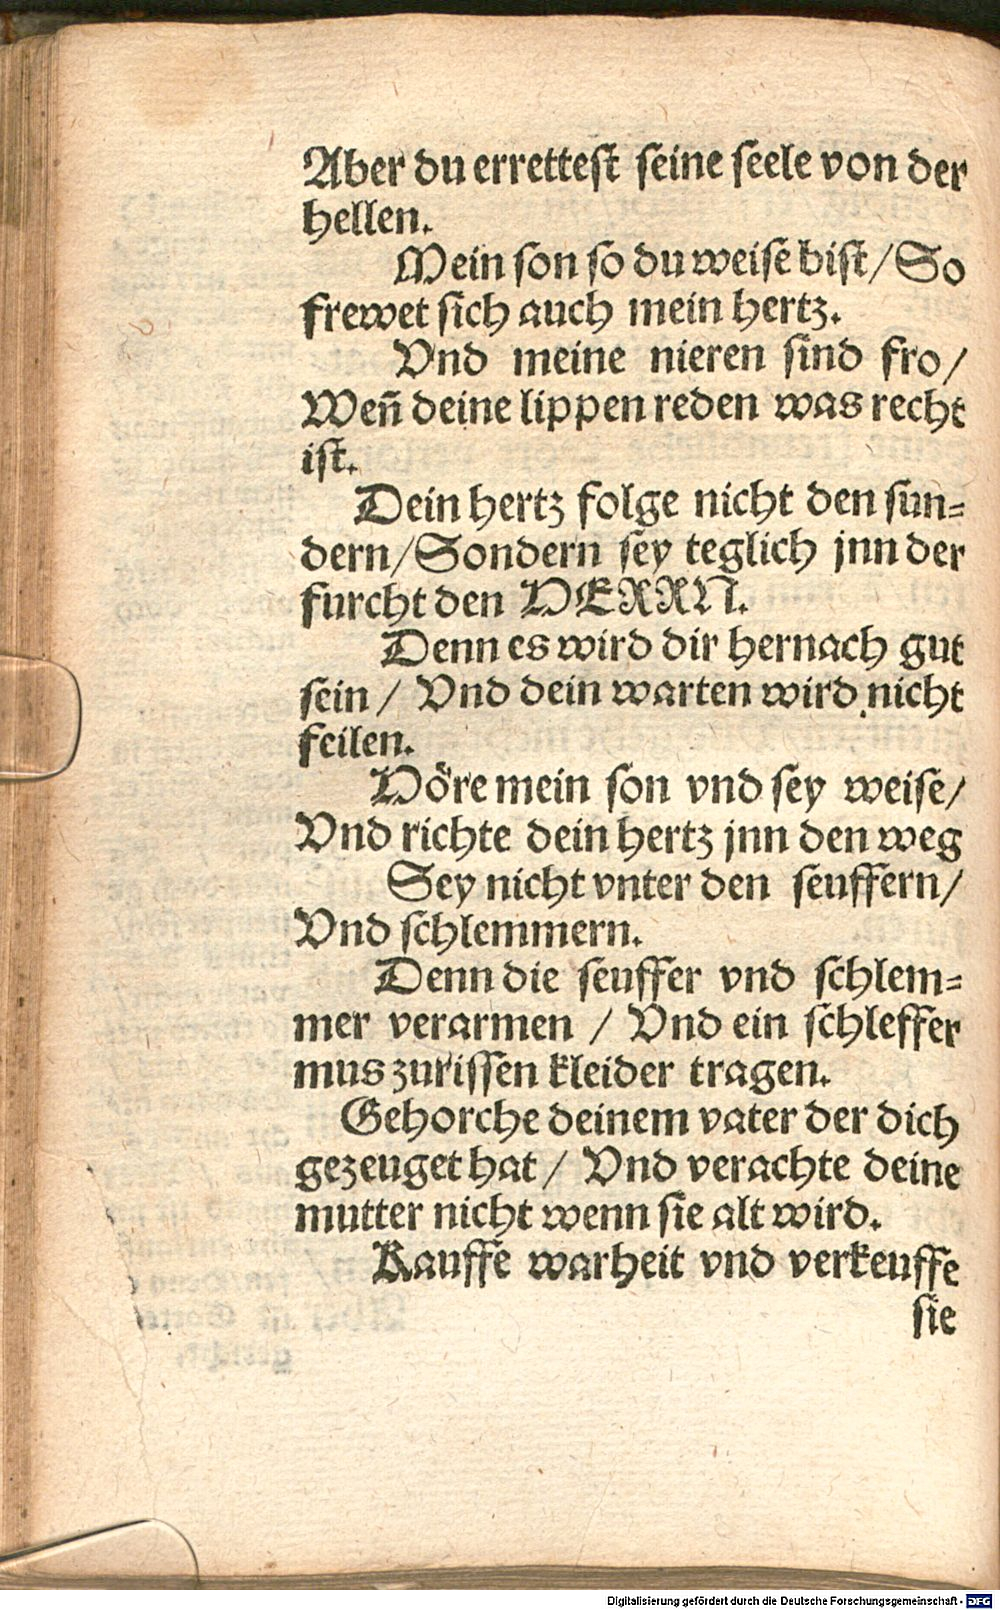 Aber du errettest seine seele von der
hellen.
Mein son so du weise bist/So
frewet sich auch mein hertz.
Vnd meine nieren sind fro/
Weñ deine lippen reden was recht
ist.
Dein hertz folge nicht den sun-
dern/Sondern sey teglich jnn der
furcht den HERRN.
Denn es wird dir hernach gut
sein / Vnd dein warten wird nicht
feilen.
Höre mein son vnd sey weise/
Vnd richte dein hertz jnn den weg
Sey nicht vnter den seuffern/
Vnd schlemmern.
Denn die seuffer vnd schlem-
mer verarmen / Vnd ein schleffer
mus zurissen kleider tragen.
Gehorche deinem vater der dich
gezeuget hat / Vnd verachte deine
mutter nicht wenn sie alt wird.
Kauffe warheit vnd verkeuffe
sie
Digitalisierung gefördert durch die Deutsche Forschungsgemeinschaft - DFG